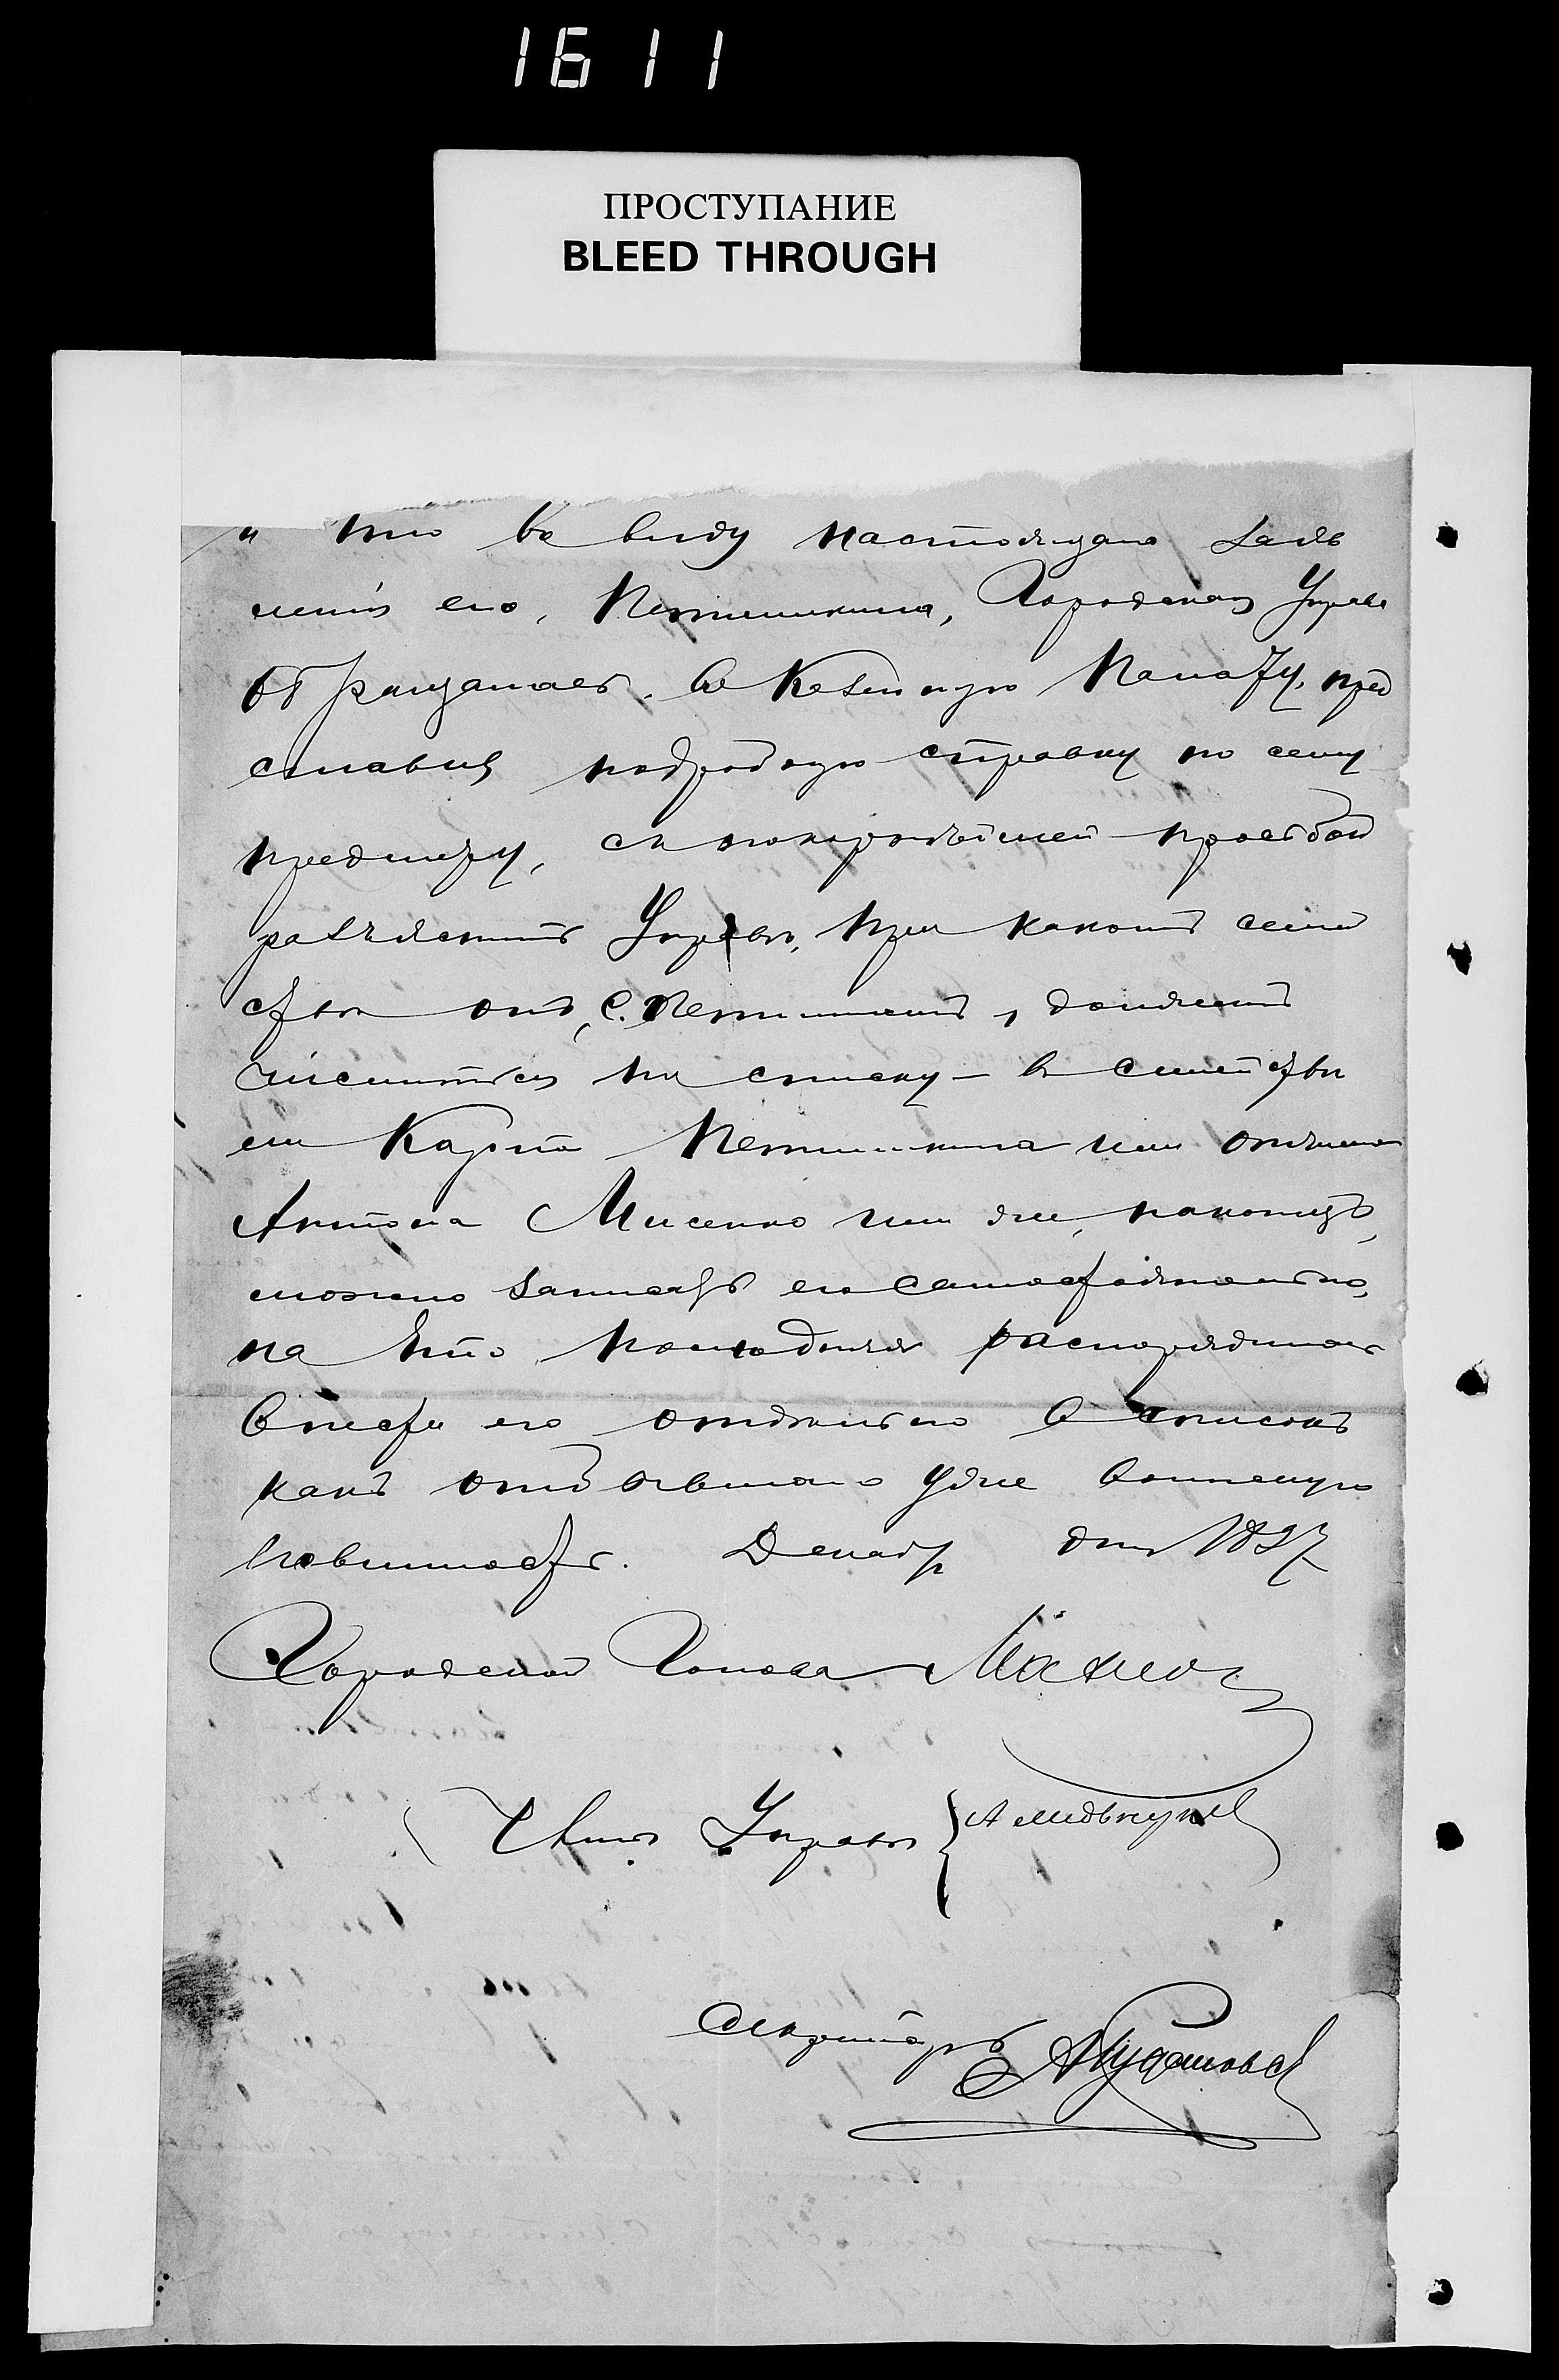 1611
ПРОСТУПАНИЕ
BLEED THROUGH
и что въ виду настоящаго заяв
ленія его, Петишкина, Городская Управа
обращаясь въ Казенную Палату, пред
ставивъ подробную справку по сему
предмету, съ покорнѣйшей просьбой
разъяснить Управѣ, при какомъ семей
ствѣ онъ, С. Петишкинъ, долженъ
числиться по списку – въ семействѣ
ли Карпа Петишкина или отчима
Антона Мисенко или же, наконецъ,
можно записать его самостоятельно,
на что, последняя распорядилась
внести его отдельно въ списокъ
какъ отбывшаго уже воинскую
повинность. Декабр дня 1897
Городской Голова
Члены Управы
Секретарь